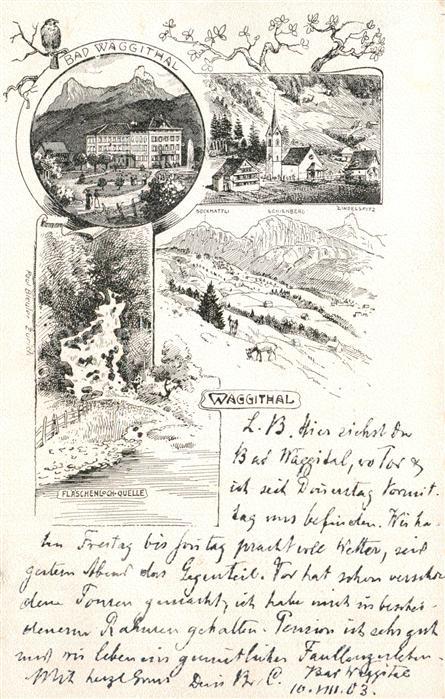 BAD WÄGGITHAL
BOCKMATTLI SCHIENBERG ZINDELSPITZ
WÄGGITHAL
FLÄSCHENLOCH-QUELLE
L. B. Hier siehst du
Bad Wäggital, wo &
ich seit Donerstag Vormit-
tag uns befinden. Wir ha-
ben Freitag bis prachtvolle Wetter, seit
gestern Abend das Gegenteil. hat schon verschie
dene Touren gemacht, ich habe mich in beschei-
denerem Rahmen gehalten. Pension ist sehr gut
und wir leben ein gemütliches Faullenzerleben.
Mit herzl. Gruss Dein Br. C. Bad Wäggital
10. VIII. 03.